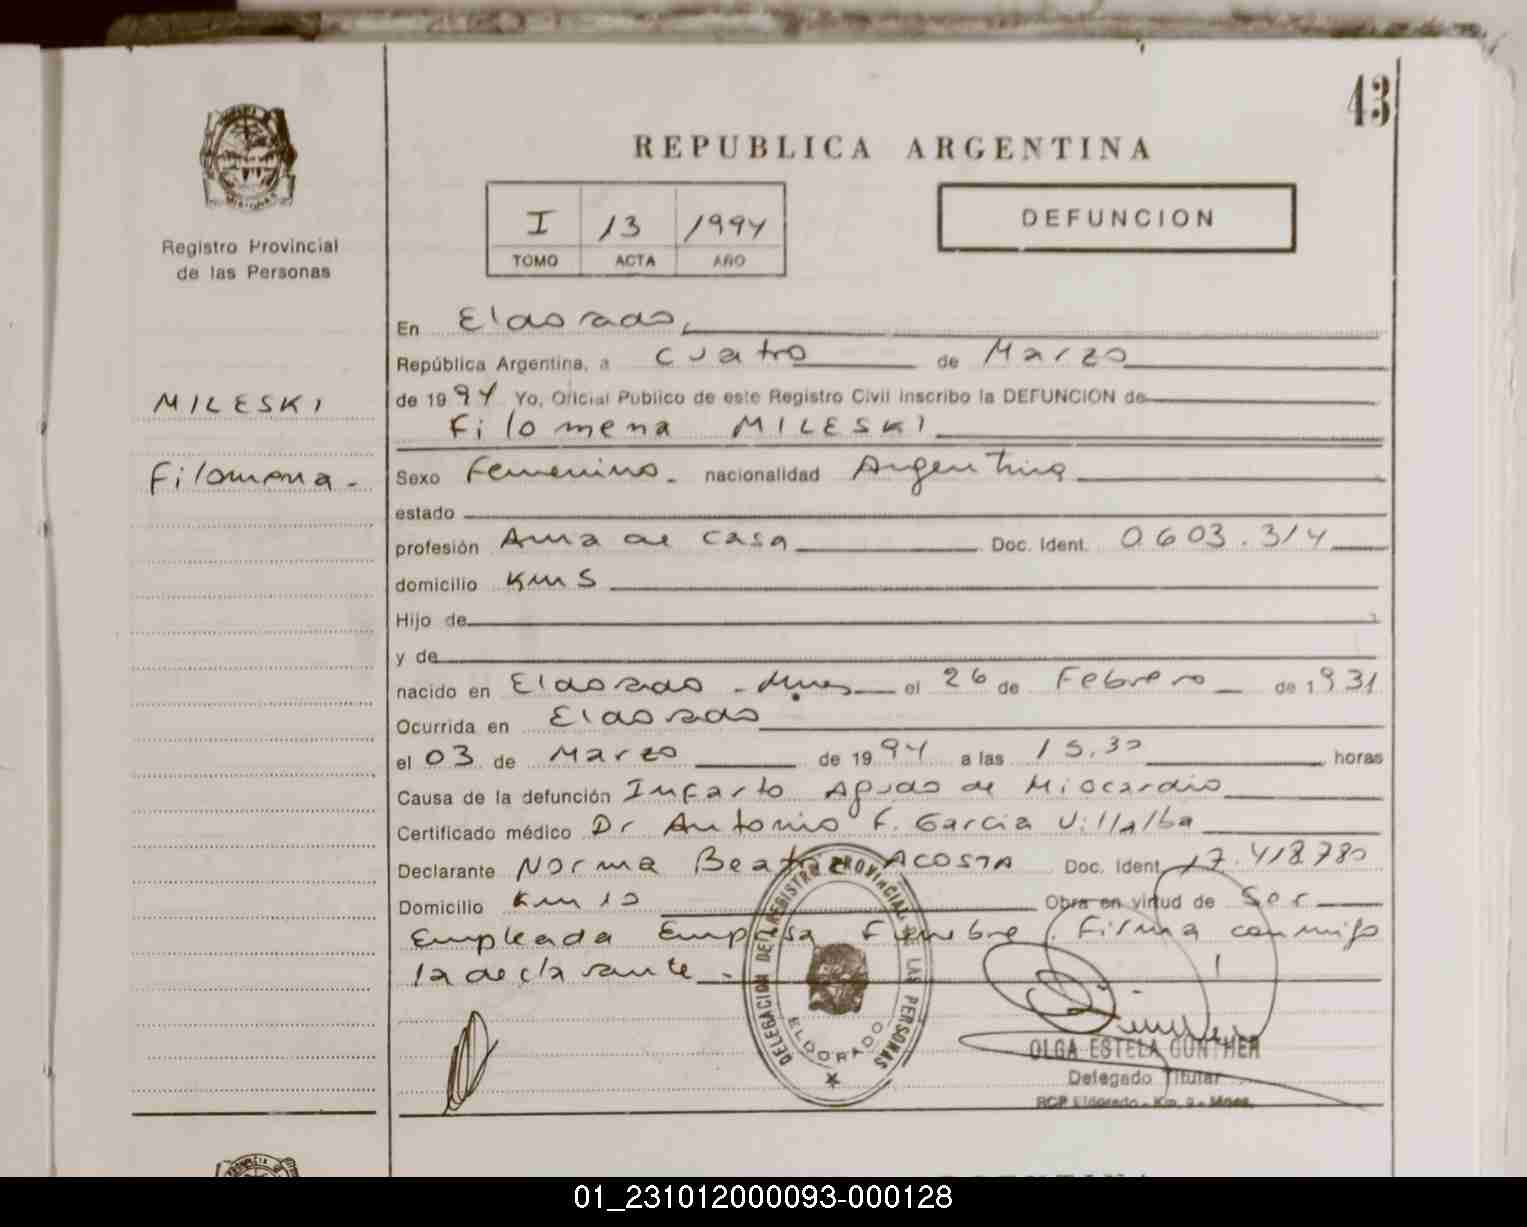 43
REPUBLICA ARGENTINA
I 13 1994
TOMO ACTA AÑO
DEFUNCION
Registro Provincial
de las Personas
MILESKI
Filomena.-
En Eldorado,
República Argentina, a cuatro de Marzo
de 1994 Yo, Oficial Publico de este Registro Civil inscribo la DEFUNCION de
Filomena MILESKI
Sexo Femenino.- nacionalidad Argentina
estado
profesión Ama de casa Doc. Ident. 0.603.314
domicilio Km 5
Hijo de
y de
nacido en Eldorado - Mnes el 26 de Febrero de 1931
Ocurrida en Eldorado
el 03 de Marzo de 1994 a las 15.30 horas
Causa de la defunción Infarto Agudo de Miocardio
Certificado médico Dr Antonio F. Garcia Villalba
Declarante Norma Beatriz ACOSTA Doc. Ident. 17.418.780
Domicilio Km 10 Obra en virtud de Ser
Empleada Empresa Funebre. Firma conmigo
la declarante.-
DELEGACION DEL REGISTRO PROVINCIAL DE LAS PERSONAS
ELDORADO
OLGA ESTELA GUNTHER
Delegado Titular
RCP Eldorado - Km. 9 - Mnes.
01_231012000093-000128